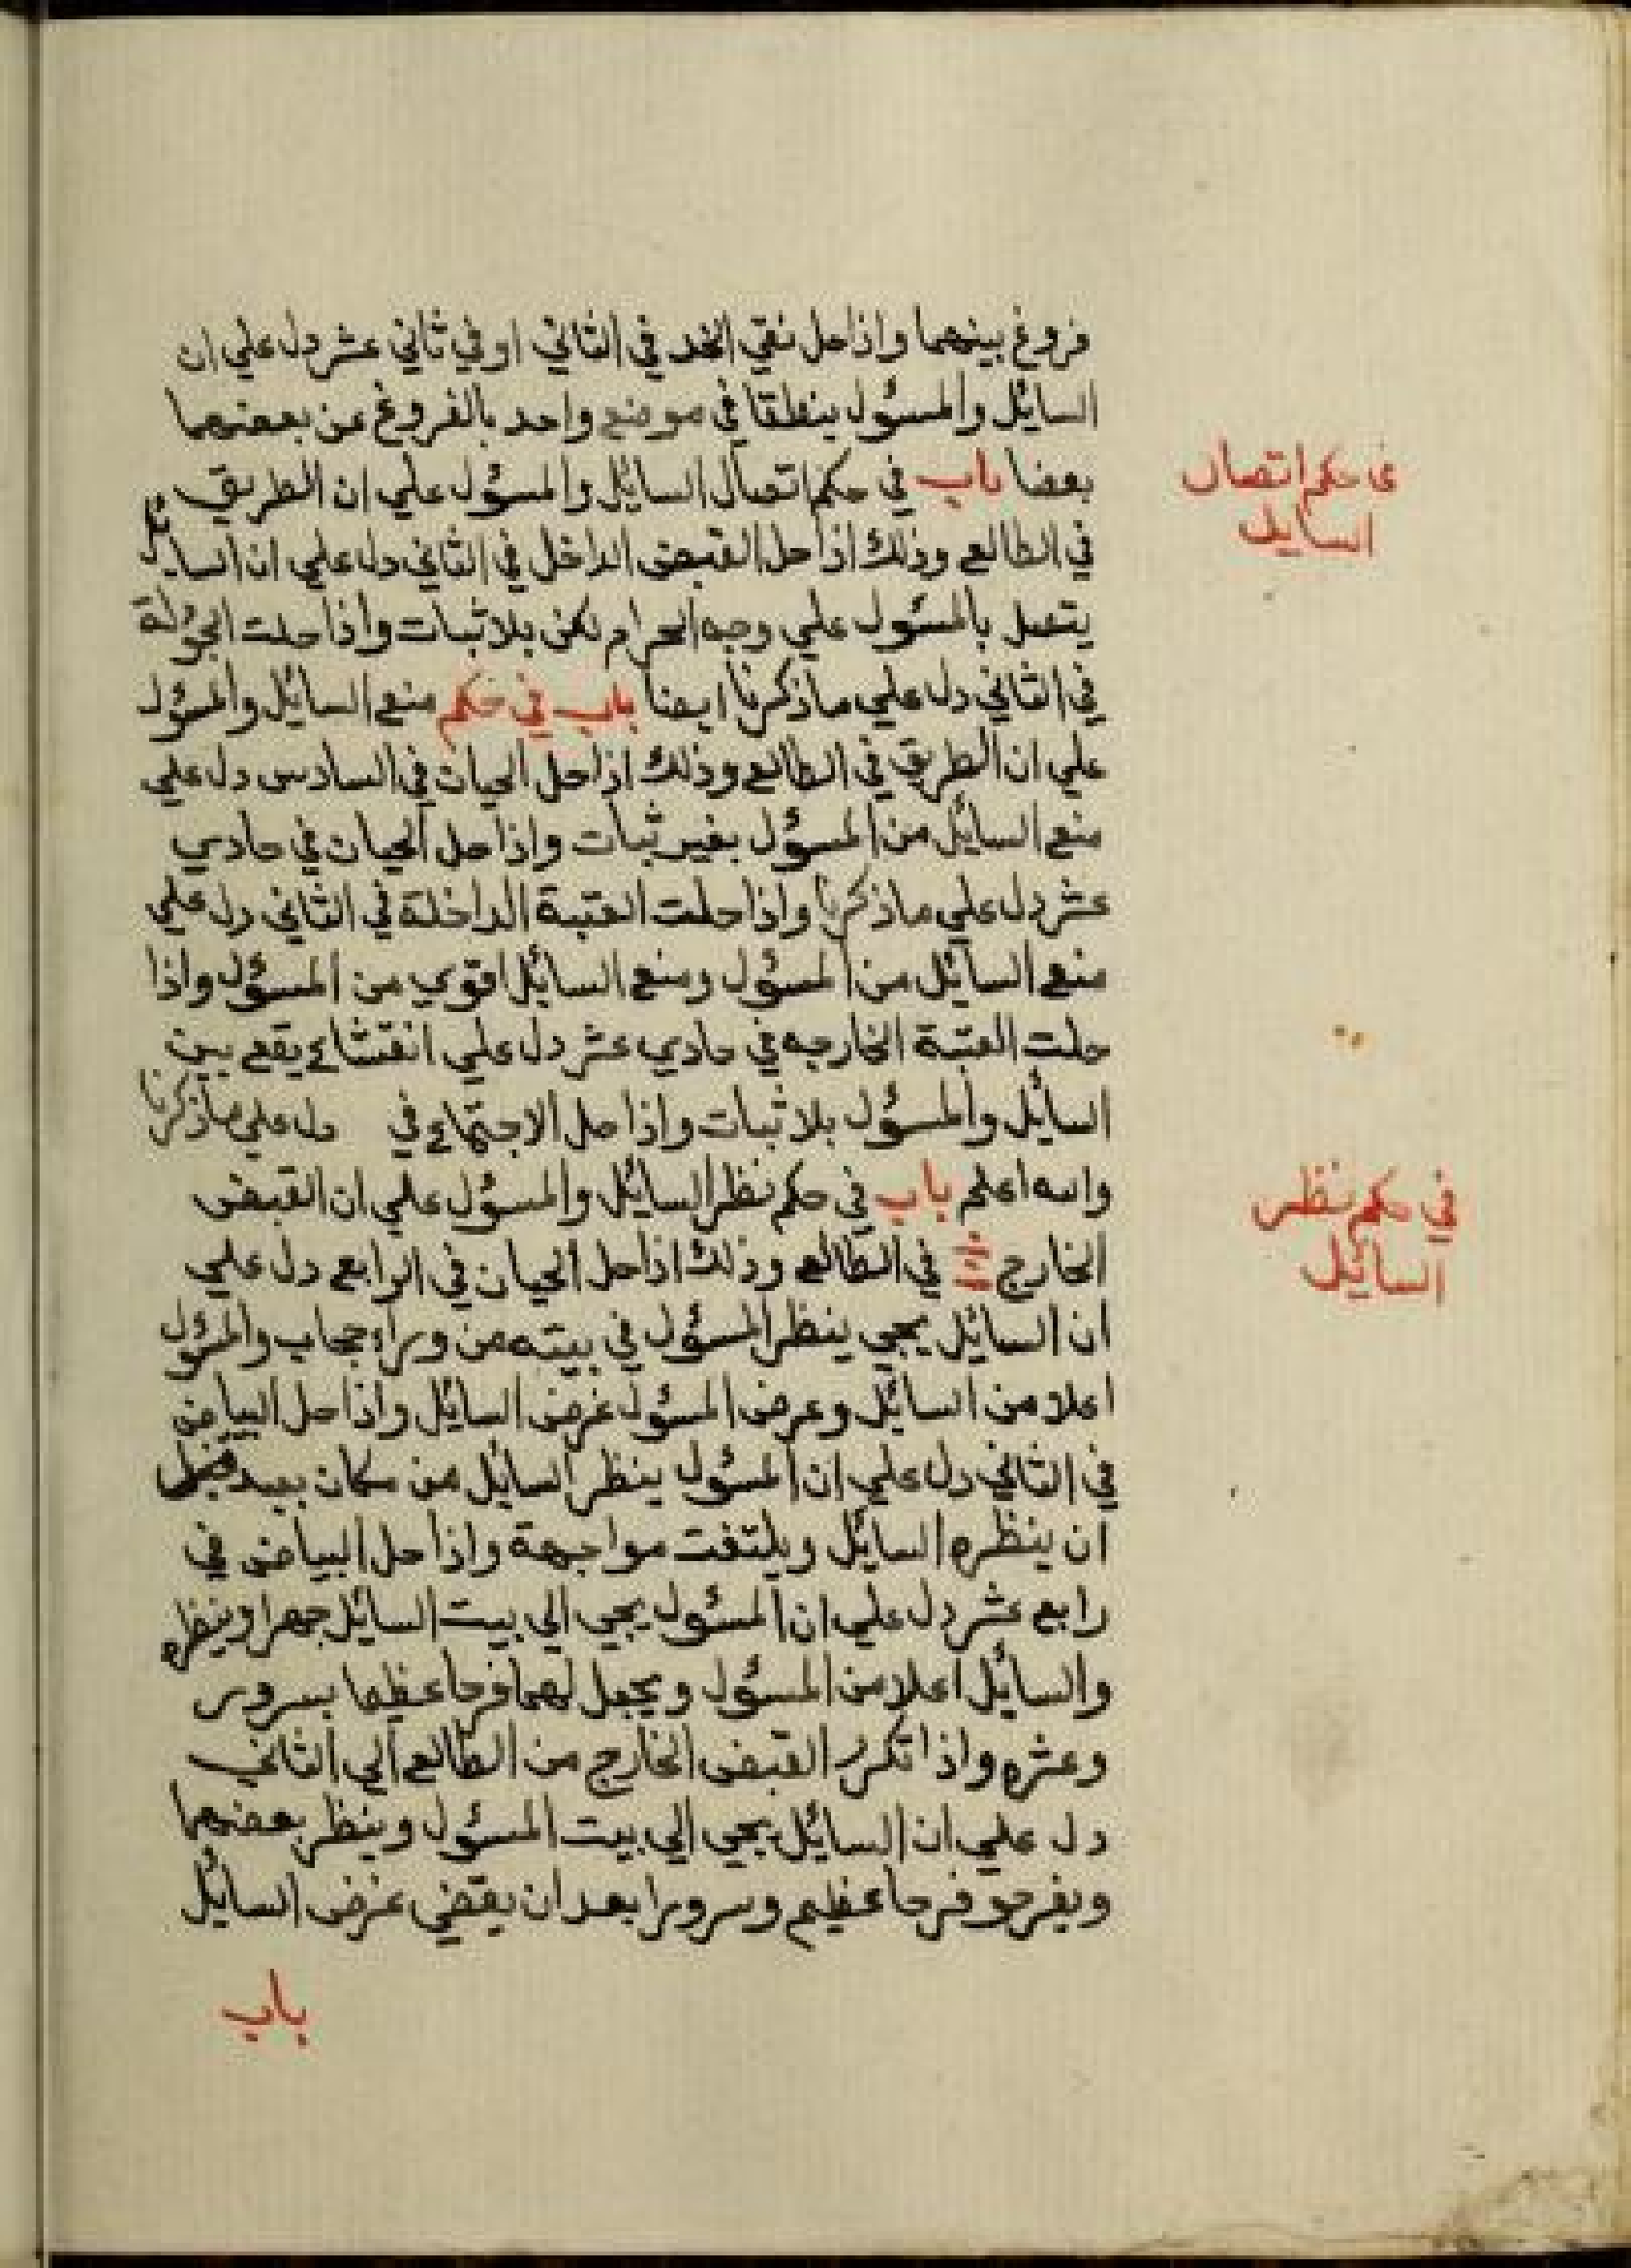 فروغ بينهما واذا حل نقي الخد في الثاني او في ثاني عشر دل علي ان
السايل والمسؤل ينطقا في موضع واحد بالفروغ عن بعضهما
في حكم اتصال
السايل
بعضا باب في حكم اتصال السايل والمسؤل علي ان الطريق
في الطالع وذلك اذا حل القبض الداخل في الثاني دل علي ان السايل
يتصل بالمسؤل علي وجه الحرام لكن بلا ثبات واذا حلت
في الثاني دل علي ما ذكرنا ايضا باب في حكم منع السايل والمسؤل
علي ان الطريق في الطالع وذلك اذا حل الحيان في السادس دل علي
منع السايل من المسؤل بغير ثبات واذا حل الحيان في حادي
عشر دل علي ما ذكرنا واذا حلت العتبة الداخلة في الثاني دل علي
منع السايل من المسؤل ومنع السايل اقوي من المسؤل واذا
حلت العتبة الخارجه في حادي عشر دل علي يقع بين
السايل والمسؤل بلا ثبات واذا حل الاجتماع في دل علي ما ذكرنا
في حكم نظر
السايل
والله اعلم باب في حكم نظر السايل والمسؤل علي ان القبض
الخارج في الطالع وذلك اذا حل الحيان في الرابع دل علي
ان السايل يجي ينظر المسؤل في بيته من وراء حجاب والمسؤل
اعلا من السايل وعرض المسؤل غرض السايل واذا حل البياض
في الثاني دل علي ان المسؤل ينظر السايل من مكان بعيد قبل
ان ينظره السايل ويلتفت مواجهة واذا حل البياض في
رابع عشر دل علي ان المسؤل يجي الي بيت السايل جهرا وينظره
والسايل اعلا من المسؤل ويجعل لهما فرحا عظيما بسرور
وعشره واذا تكرر القبض الخارج من الطالع الي الثاني
دل علي ان السايل يجي الي بيت المسؤل وينظر بعضهما
ويفرحو فرحا عظيم وسرورا بعد ان يقضي غرض السايل
باب